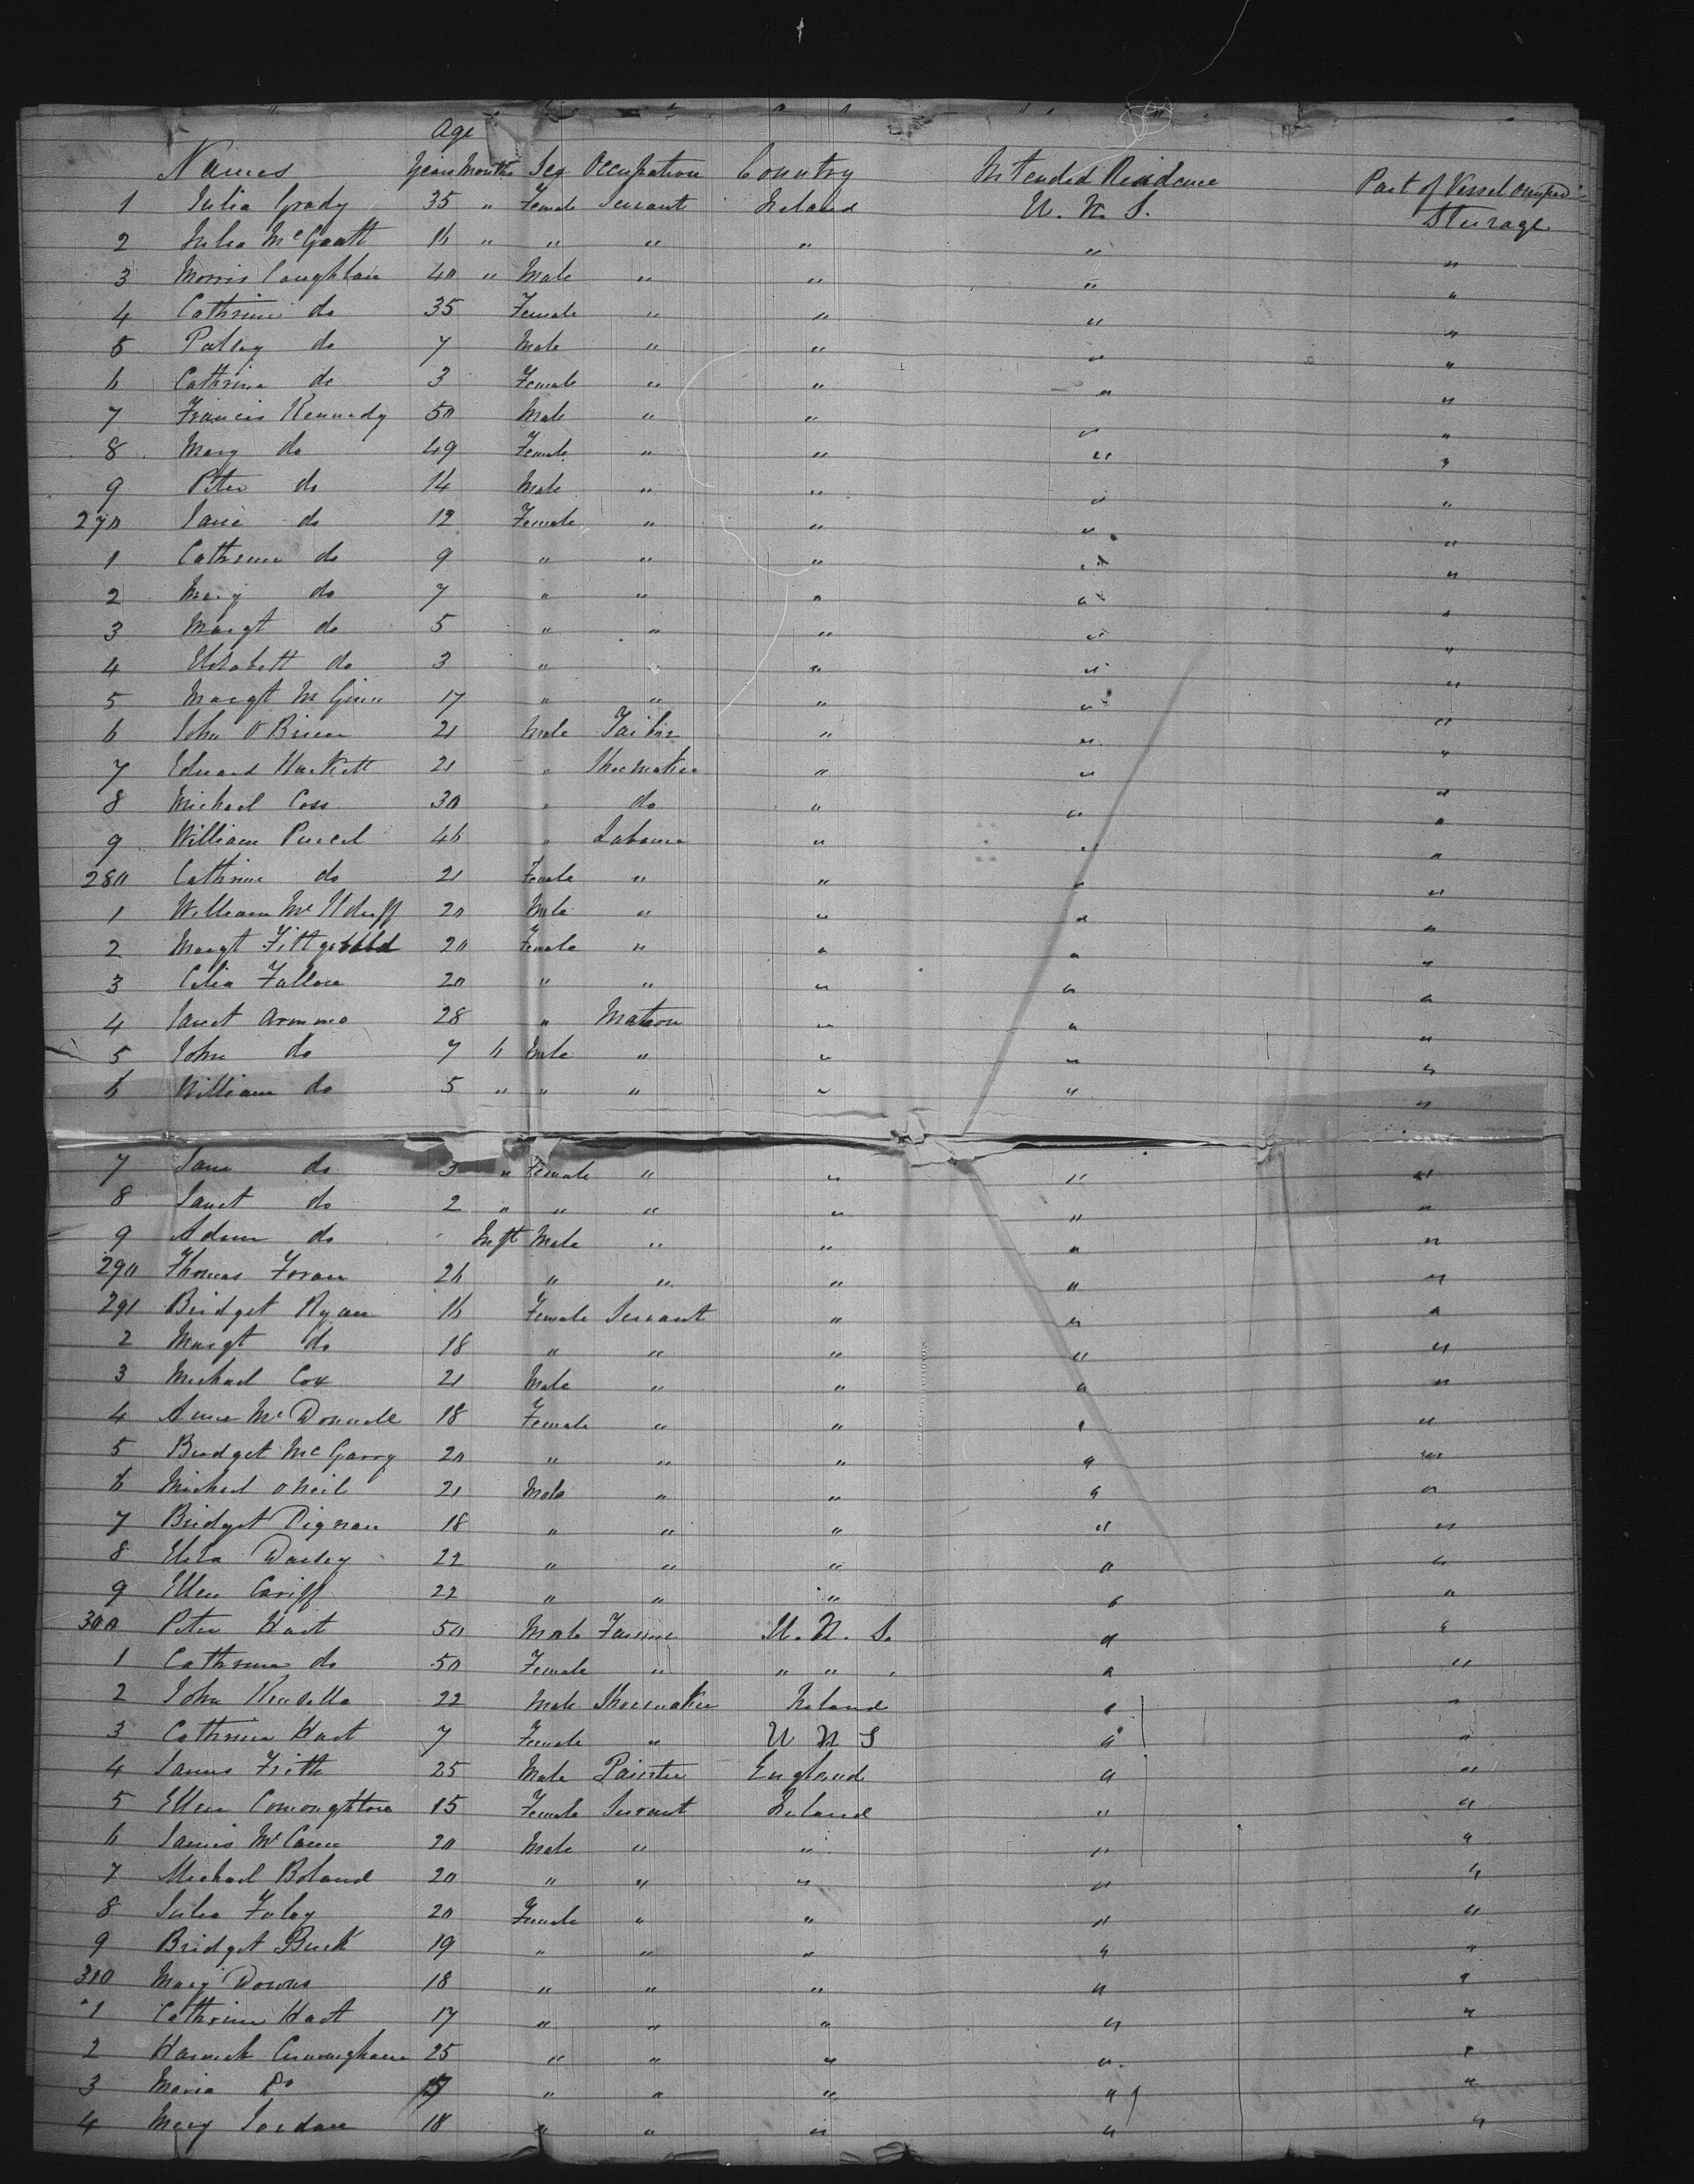 Age
Names Years Months Sex Occupation Country Intended Residence Part of Vessel occupied
1 Julia Grady 35 " Female Servant Ireland U. N. S. Sturage
2 Julia McGratt 16 " " " " " "
3 Morris Coughlan 40 " Male " " " "
4 Cathrine do 35 Female " " " "
5 Patsey do 7 Male " " " "
6 Cathrine do 3 Female " " " "
7 Francis Kennedy 50 Male " " " "
8 Mary do 49 Female " " " "
9 Peter do 14 Male " " " "
270 Jane do 12 Female " " " "
1 Cathrine do 9 " " " " "
2 Mary do 7 " " " " "
3 Margt do 5 " " " " "
4 Elizabett do 3 " " " " "
5 Margt McGinn 17 " " " " "
6 John O Brien 21 Male Tailor " " "
7 Edward Hackett 21 " Shoemaker " " "
8 Michael Coss 30 " do " " "
9 William Purcel 46 " Labourer " " "
280 Cathrine do 21 Female " " " "
1 William 20 Male " " " "
2 Margt Fittgerald 20 Female " " " "
3 Celia Fallon 20 " " " " "
4 Janet 28 " Matron " " "
5 John do 7 6 Male " " " "
6 William do 5 " " " " " "
7 Jane do 3 " Female " " " "
8 Janet do 2 " " " " " "
9 Adam do Inft Male " " " "
290 Thomas Foran 26 " " " " "
291 Bridget Ryan 16 Female Servant " " "
2 Margt do 18 " " " " "
3 Michael Cox 21 Male " " " "
4 Anne McDonnell 18 Female " " " "
5 Bridget McGarry 20 " " " " "
6 Micheal oNeil 21 Male " " " "
7 Bridget Dignan 18 " " " " "
8 Eliza Darsey 22 " " " " "
9 Ellen Cariff 22 " " " " "
300 Peter Hart 50 Male Farmer U. N. S. " "
1 Cathrine do 50 Female " " " " "
2 John Kinsella 22 Male Shoemaker Ireland " "
3 Cathrine Hart 7 Female " U N S " "
4 James Frith 25 Male Painter England " "
5 Ellen 15 Female Servant Ireland " "
6 James McCann 20 Male " " " "
7 Michael Boland 20 " " " " "
8 Julia Foley 20 Female " " " "
9 Bridget Burk 19 " " " " "
310 Mary Downs 18 " " " " "
1 Cathrine Hart 17 " " " " "
2 Hannah Cunningham 25 " " " " "
3 Maria Do " " " " "
4 Mary Jordan 18 " " " " "